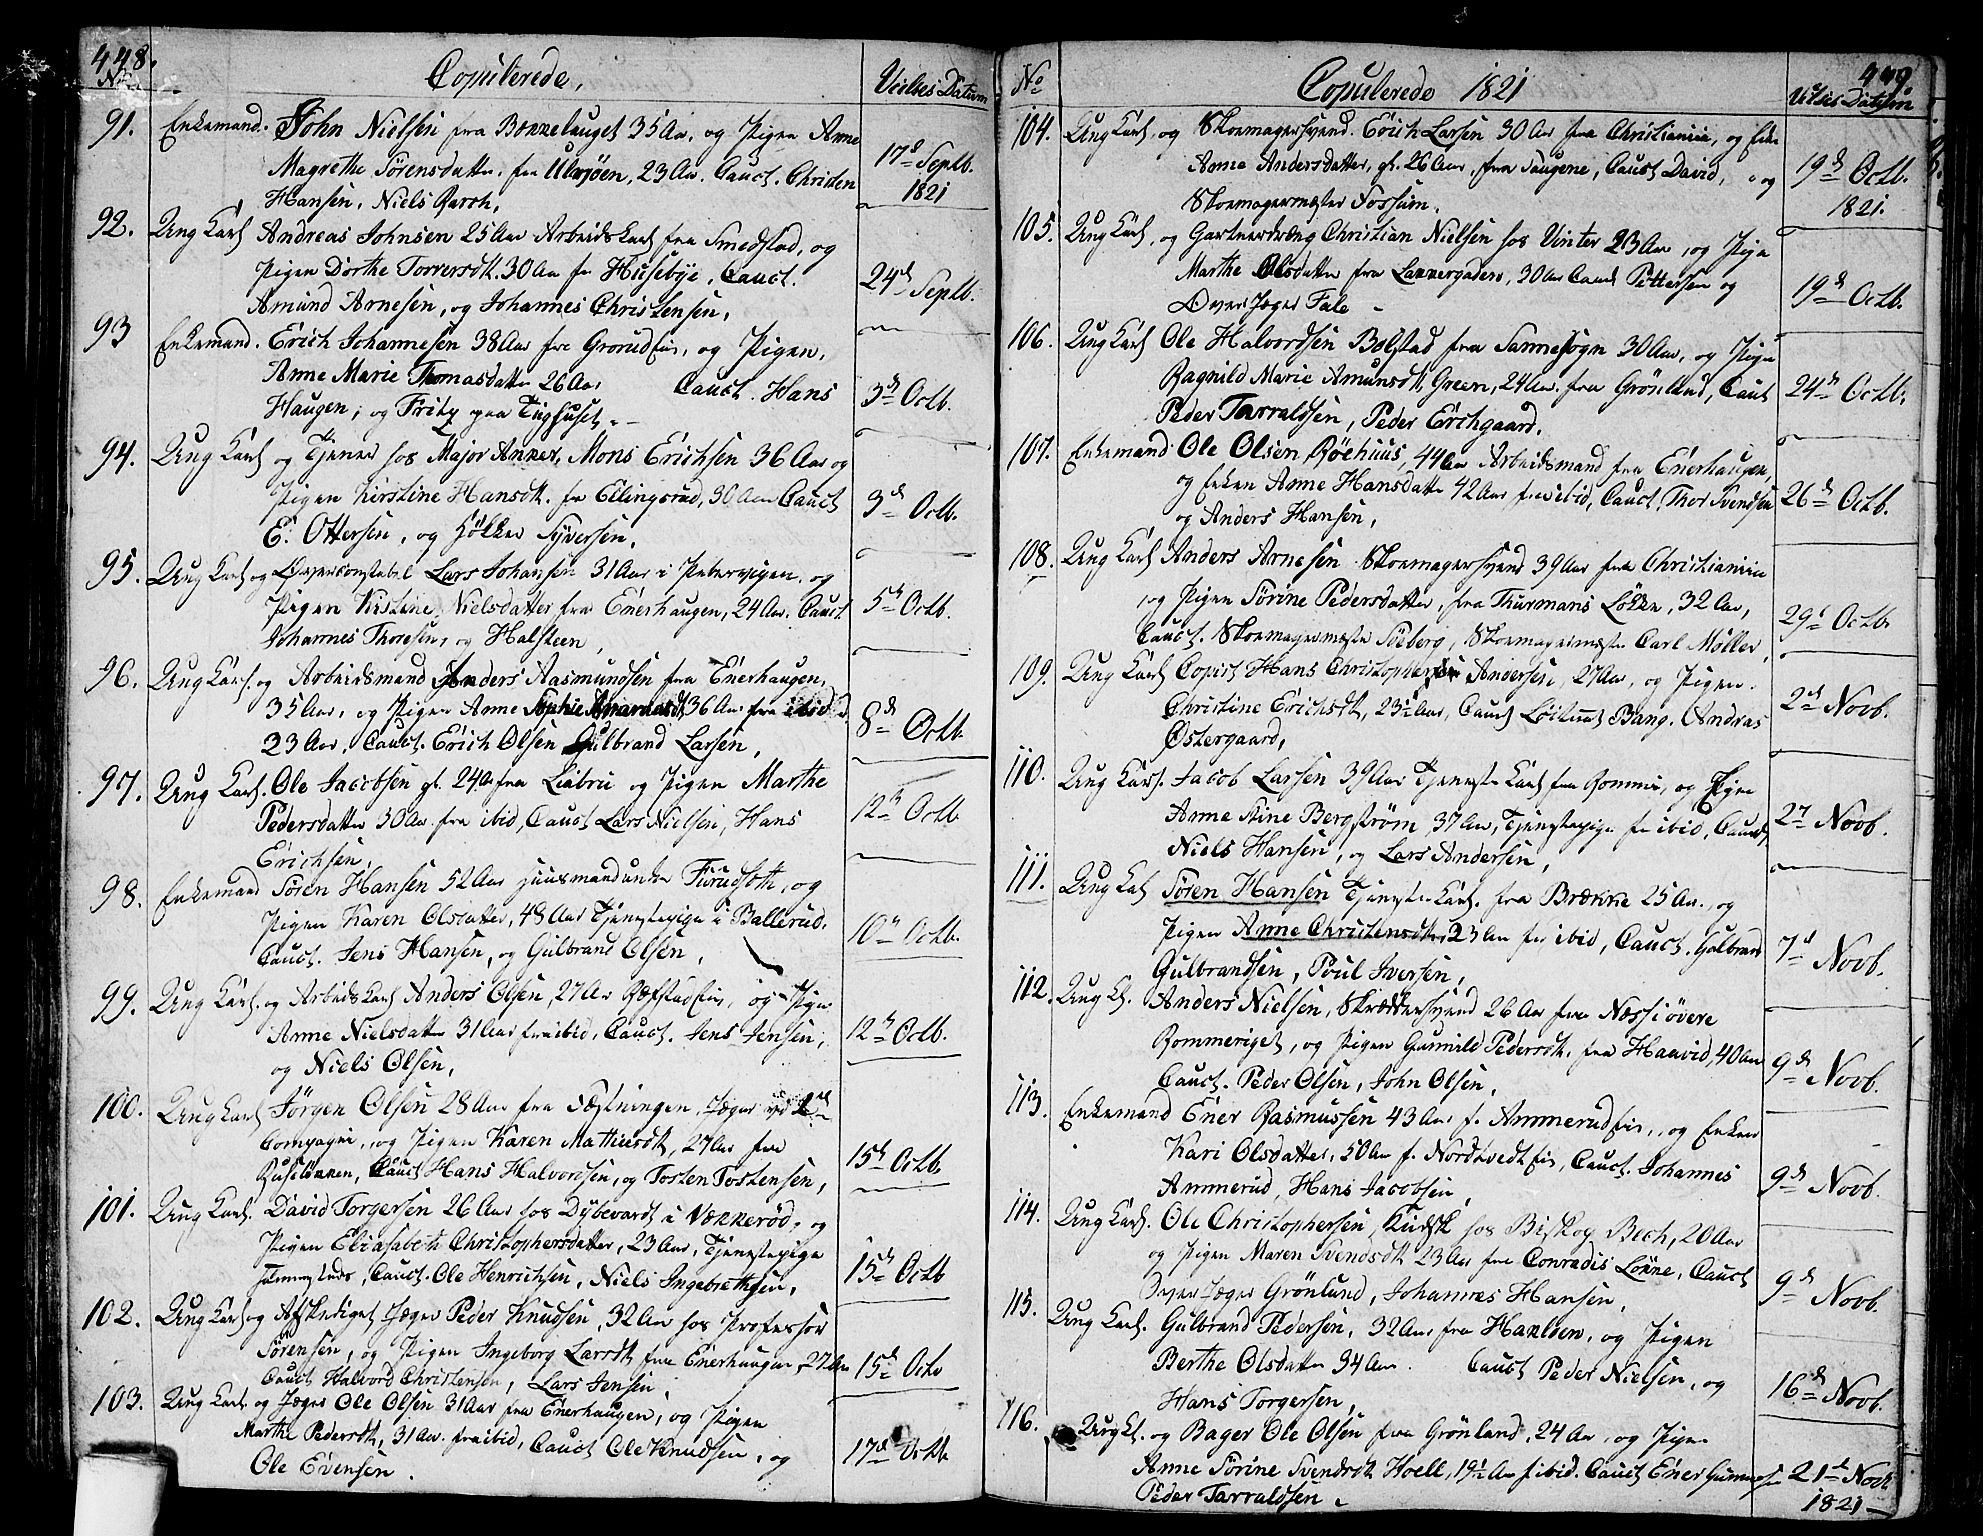 448.
No
Copulerede,
Vielses Datum
91. Enkemand. John Nielsen fra Bekkelauget 35 Aar, og Pigen Anne
Magrethe Sörensdatter fra Ulvöen, 23 Aar. Cauct. Christen
Hansen, Niels
17de Septb. 1821
92. Ung Karl Andreas Johnsen 25 Aar Arbeidskarl fra Smedstad, og
Pigen Dorthe Torersdt. 30 Aar fra Husebye, Cauct.
Amund Arnesen, og Johannes Christensen,
24de Septb.
93 Enkemand. Erich Johannesen 38 Aar fra Grorudeie, og Pigen,
Anne Marie Thomasdatter 26 Aar Cauct. Hans
Haugen, og Fritz paa Tughuset.
3de Octb.
94. Ung Karl og Tjener hos Major Anker, Mons Erichsen 36 Aar og
Pigen Kirstine Hansdt. fra Ellingsrud, 30 Aar Cauct
E. Ottersen, og Syversen.
3de Octb.
95. Ung Karl og Overconstabel Lars Johansen 31 Aar i Pebervigen, og
Pigen Kirstine Nielsdatter fra Enerhaugen, 24 Aar. Cauct.
Johannes Thoresen, og Halsteen,
5te Octb.
96. Ung Karl. og Arbeidsmand Anders Aasmundsen fra Enerhaugen,
35 Aar, og Pigen Anne Sophie 36 Aar fra ibid
23 Aar, Cauct. Erich Olsen Gulbrand Larsen,
8de Octb.
97. Ung Karl. Ole Jacobsen gl. 24 Aar fra Liabru og Pigen Marthe
Pedersdatter 30 Aar fra ibid, Cauct Lars Nielsen, Hans
Erichsen,
12te Octb.
98. Enkemand Sören Hansen 52 Aar Huusmand under Furuseth, og
Pigen Karen Olsdatter, 48 Aar Tjenestepige i Ballerud.
Cauct. Jens Hansen, og Gulbrand Olsen,
10de Octb.
99. Ung Karl. og Arbeidskarl Anders Olsen, 27 Aar Refstadeie, og Pigen
Anne Nielsdatter 31 Aar fra ibid, Cauct. Jens Jensen,
og Niels Olsen,
12te Octb.
100. Ung Karl Jörgen Olsen 28 Aar fra Fæstningen, Jæger ved 2det
Compagni, og Pigen Karen Mathiesdt, 27 Aar fra
Ruselökken, Cauct Hans Halvordsen, og Tosten Tostensen,
15de Octb.
101. Ung Karl. David Torgersen 26 Aar hos Dybevardt i Vækkerød, og
Pigen Eliasabeth Christophersdatter, 23 Aar, Tjenestepige
sammesteds, Cauct. Ole Henrichsen, Niels Ingebrethsen,
15de Octb
102. Ung Karl og Afskediget Jæger Peder Knudsen, 32 Aar hos Professor
Sörensen, og Pigen Ingeborg Larsdt fra Enerhaugen, 27 Aar
Cauct Halvord Christensen, Lars Jensen,
15de Octb
103. Ung Karl. og Jæger Ole Olsen 31 Aar fra Enerhaugen, og Pigen
Marthe Pedersdt, 31 Aar. fra ibid, Cauct Ole Knudsen, og
Ole Evensen.
17de Octb.
449
No
Copulerede 1821
Vielses Datum
104. Ung Karl, og Skomagersvend. Erich Larsen 30 Aar fra Christiania, og Enke
Anne Andersdatter, gl. 26 Aar, fra Saugene, Cauct David, og
Skomagermester Fossum.
19de Octb. 1821.
105. Ung Karl, og Gartnerdreng Christian Nielsen hos Vinter 23 Aar, og Pige
Marthe Olsdatter fra Lakkegaden, 30 Aar Cauct Pettersen og
OverJæger Fale
19de Octb.
106. Ung Karl Ole Halvordsen Bolstad fra Sannesogn 30 Aar, og Pigen
Ragnild Marie Amunsdt, Green, 24 Aar. fra Grönland, Cauct
Peder Tarraldsen, Peder Erchgaard.
24de Octb.
107. Enkemand Ole Olsen Röehuus, 44 Aar Arbeidsmand fra Enerhaugen,
og Enken Anne Hansdatter 42 Aar fra ibid, Cauct. Thor Svendsen
og Anders Hansen,
26de Octb.
108. Ung Karl Anders Arnesen Skomagersvend 39 Aar fra Christiania
og Pigen Sörine Pedersdatter, fra Thurmans Lökke, 32 Aar,
Cauct. Skomagermester Söeberg, Skomagermester Carl Møller,
29de Octb.
109. Ung Karl Copist Hans Christophersen Andersen, 27 Aar, og Pigen.
Christine Erichsdt, 23½ Aar, Cauct Bang. Andras
Østergaard,
2den Novb.
110. Ung Karl. Jacob Larsen 39 Aar Tjeneste Karl fra Bommen, og Pigen
Anne Stine Bergström, 37 Aar, Tjenestepige fra ibid, Cauct.
Niels Hansen, og Lars Andersen,
2den Novb.
111. Ung Karl Sören Hansen Tjeneste Karl. fra Brække 25 Aar. og
Pigen Anne Christensdt, 23 Aar fra ibid, Cauct. Gulbrand
Gulbrandsen, Poul Iversen,
7de Novb.
112. Ung Kl. Anders Nielsen, Skræddersvend 26 Aar fra Næss i övere
Rommeriget, og Pigen Gunnild Pedersdt. fra Haavid, 40 Aar
Cauct. Peder Olsen, John Olsen,
9de Novb.
113. Enkemand Ener Rasmussen 43 Aar f. Ammerudeie, og Enken
Kari Olsdatter, 50 Aar f. Nordtvedteie, Cauct. Johannes
Ammerud, Hans Jacobsen,
9de Novb.
114. Ung Karl. Ole Christophersen, Kudsk hos Biskop Bech, 20 Aar
og Pigen Maren Svendsdt 23 Aar fra Conradis Lökke, Cauct
OverJæger Grönlund, Johannes Hansen,
9de Novb.
115. Ung Karl. Gulbrand Pedersen, 32 Aar, fra Haslden, og Pigen
Berthe Olsdatter 34 Aar. Cauct Peder Nielsen, og
Hans Torgersen,
16de Novb.
116. Ung Kl. og Bager Ole Olsen fra Grönland, 24 Aar, og Pigen
Anne Sörine Svendsdt Hoell, 19½ Aar f ibid. Cauct Ener Gunnersen
Peder Tarraldsen.
21de Novb 1821